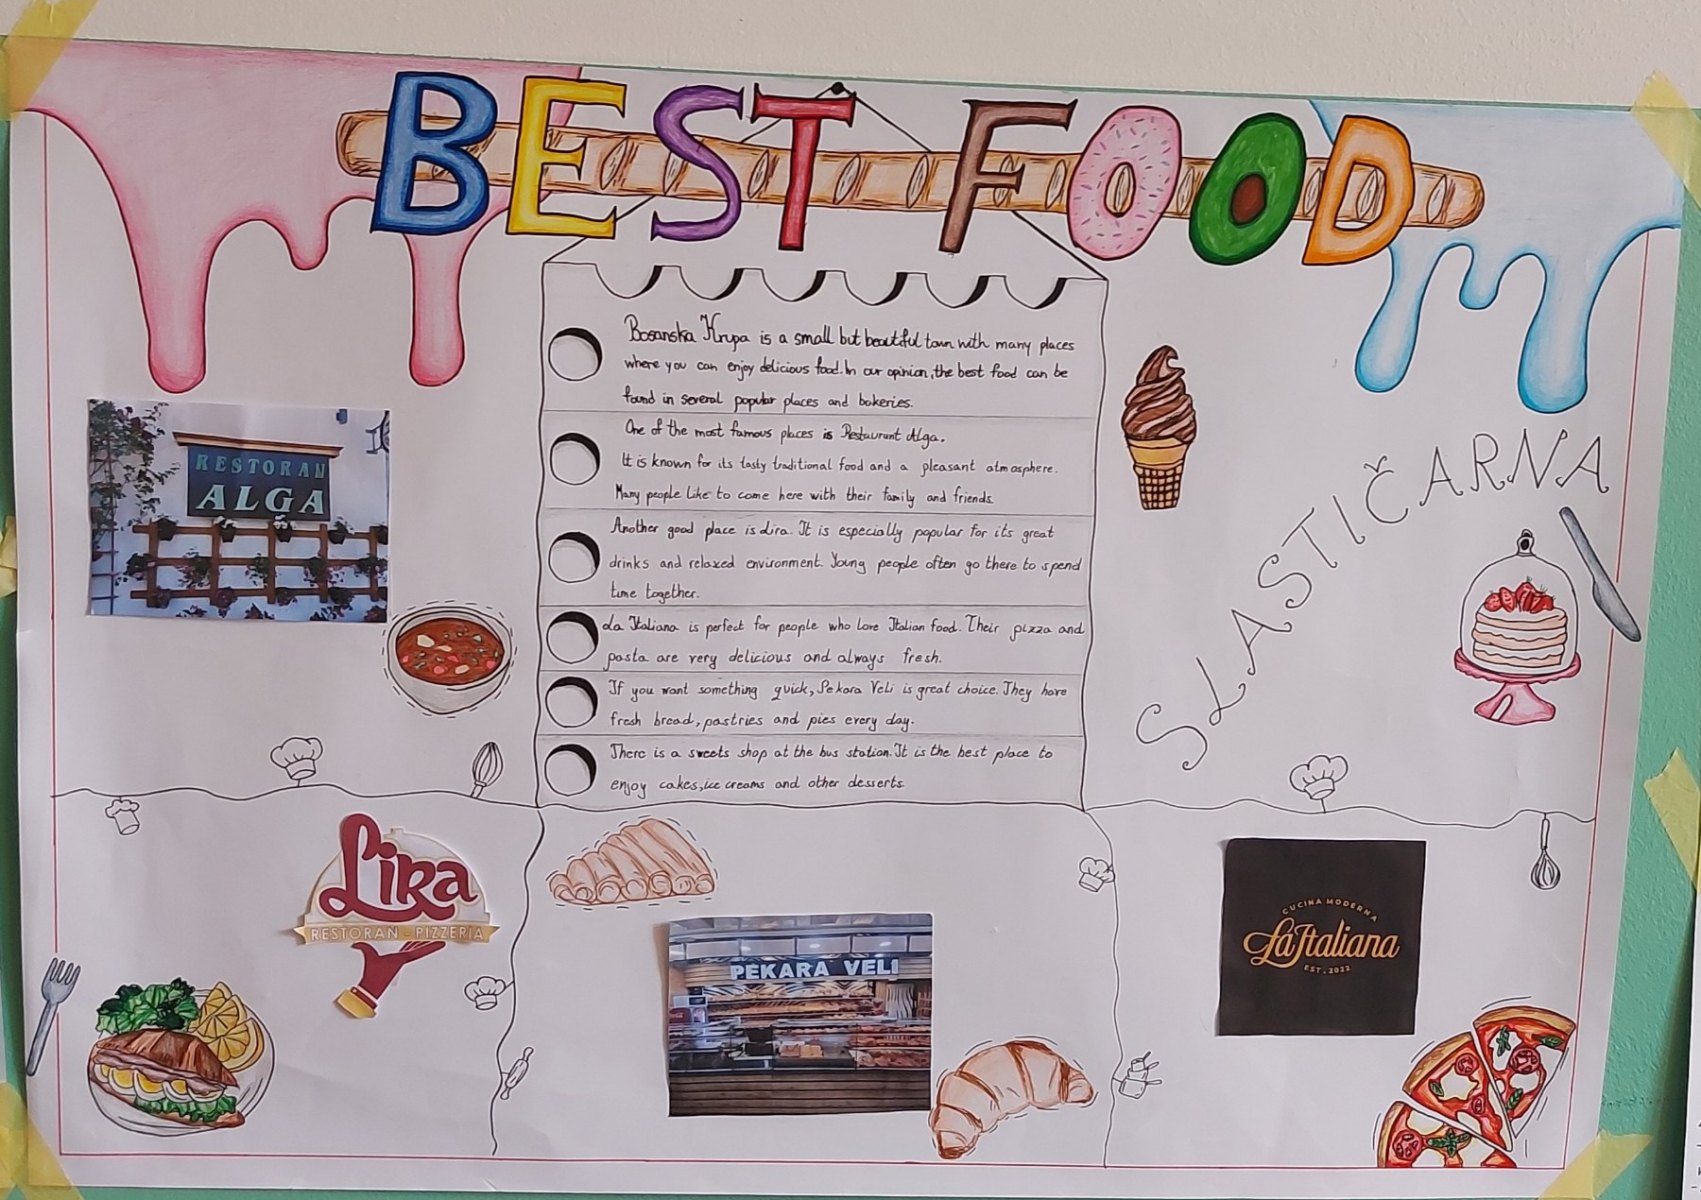 BEST FOOD
Bosanska Krupa is a small but beautiful town with many places
where you can enjoy delicious food. In our opinion, the best food can be
found in several popular places and bakeries.
One of the most famous places is Restaurant Alga.
It is known for its tasty traditional food and a pleasant atmosphere.
Many people like to come here with their family and friends.
Another good place is Lira. It is especially popular for its great
drinks and relaxed environment. Young people often go there to spend
time together.
La Italiana is perfect for people who love Italian food. Their pizza and
pasta are very delicious and always fresh.
If you want something quick, Pekara Veli is great choice. They have
fresh bread, pastries and pies every day.
There is a sweets shop at the bus station. It is the best place to
enjoy cakes, ice creams and other desserts.
RESTORAN
ALGA
SLASTIČARNA
Lira
RESTORAN - PIZZERIA
PEKARA VELI
CUCINA MODERNA
La Italiana
EST. 2022